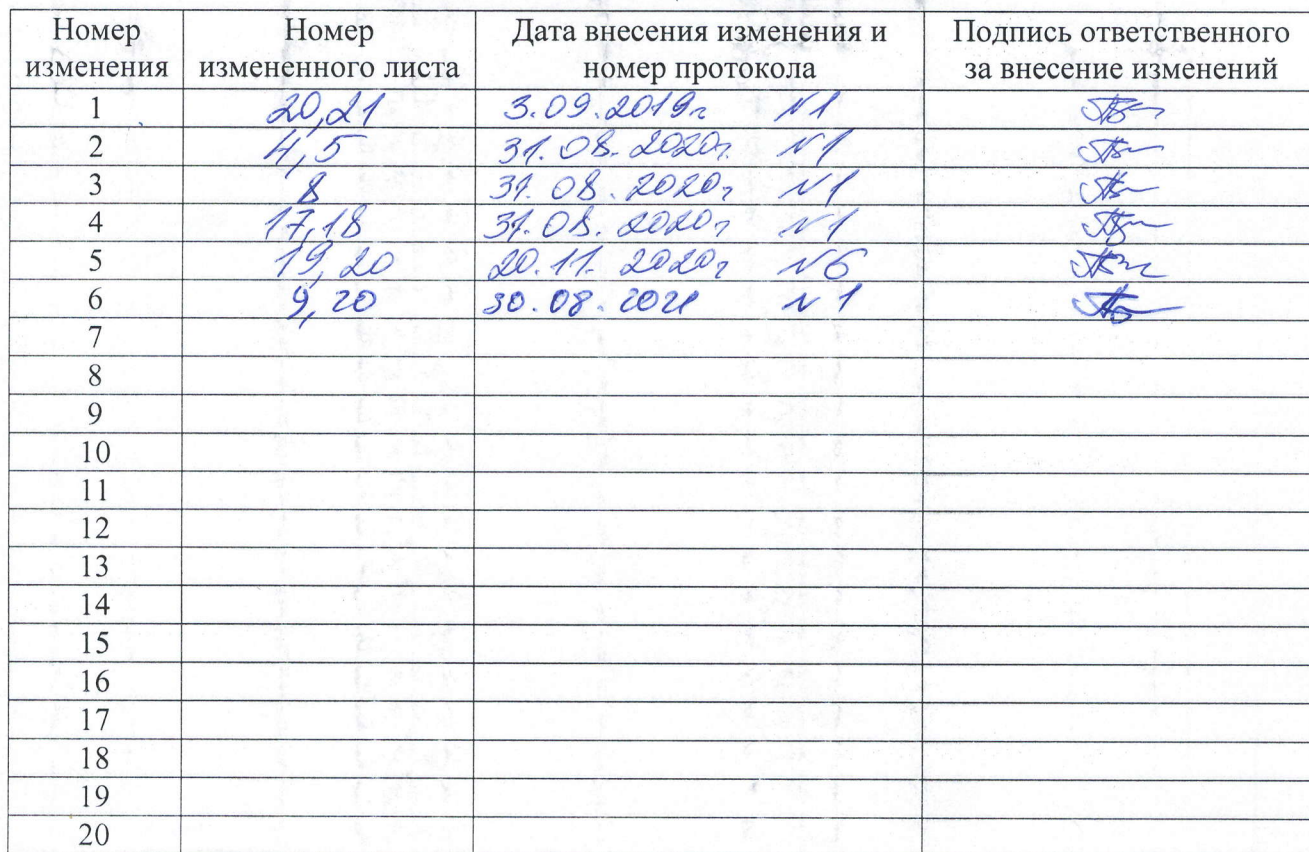 Номер изменения Номер измененного листа Дата внесения изменения и номер протокола Подпись ответственного за внесение изменений
1 20,21 3.09.2019г N1
2 4,5 31.08.2020г N1
3 8 31.08.2020г N1
4 17,18 31.08.2020г N1
5 19,20 20.11.2020г N6
6 9,20 30.08.2021 N1
7
8
9
10
11
12
13
14
15
16
17
18
19
20